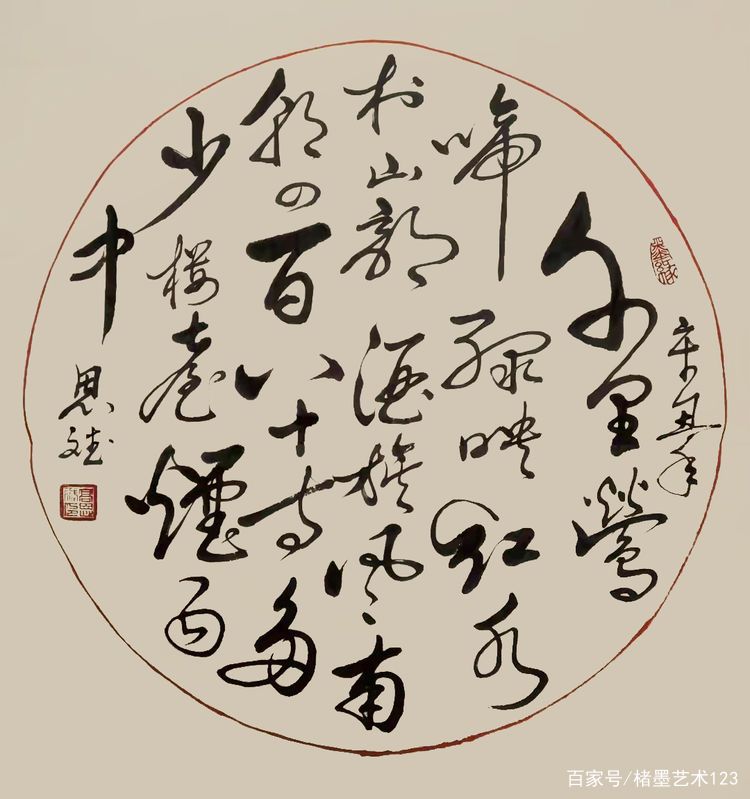 辛丑年
千里鶯
啼绿映红水
村山郭酒旗风南
朝四百八十寺多
少楼臺煙雨
中
思斌
百家号/楮墨艺术123